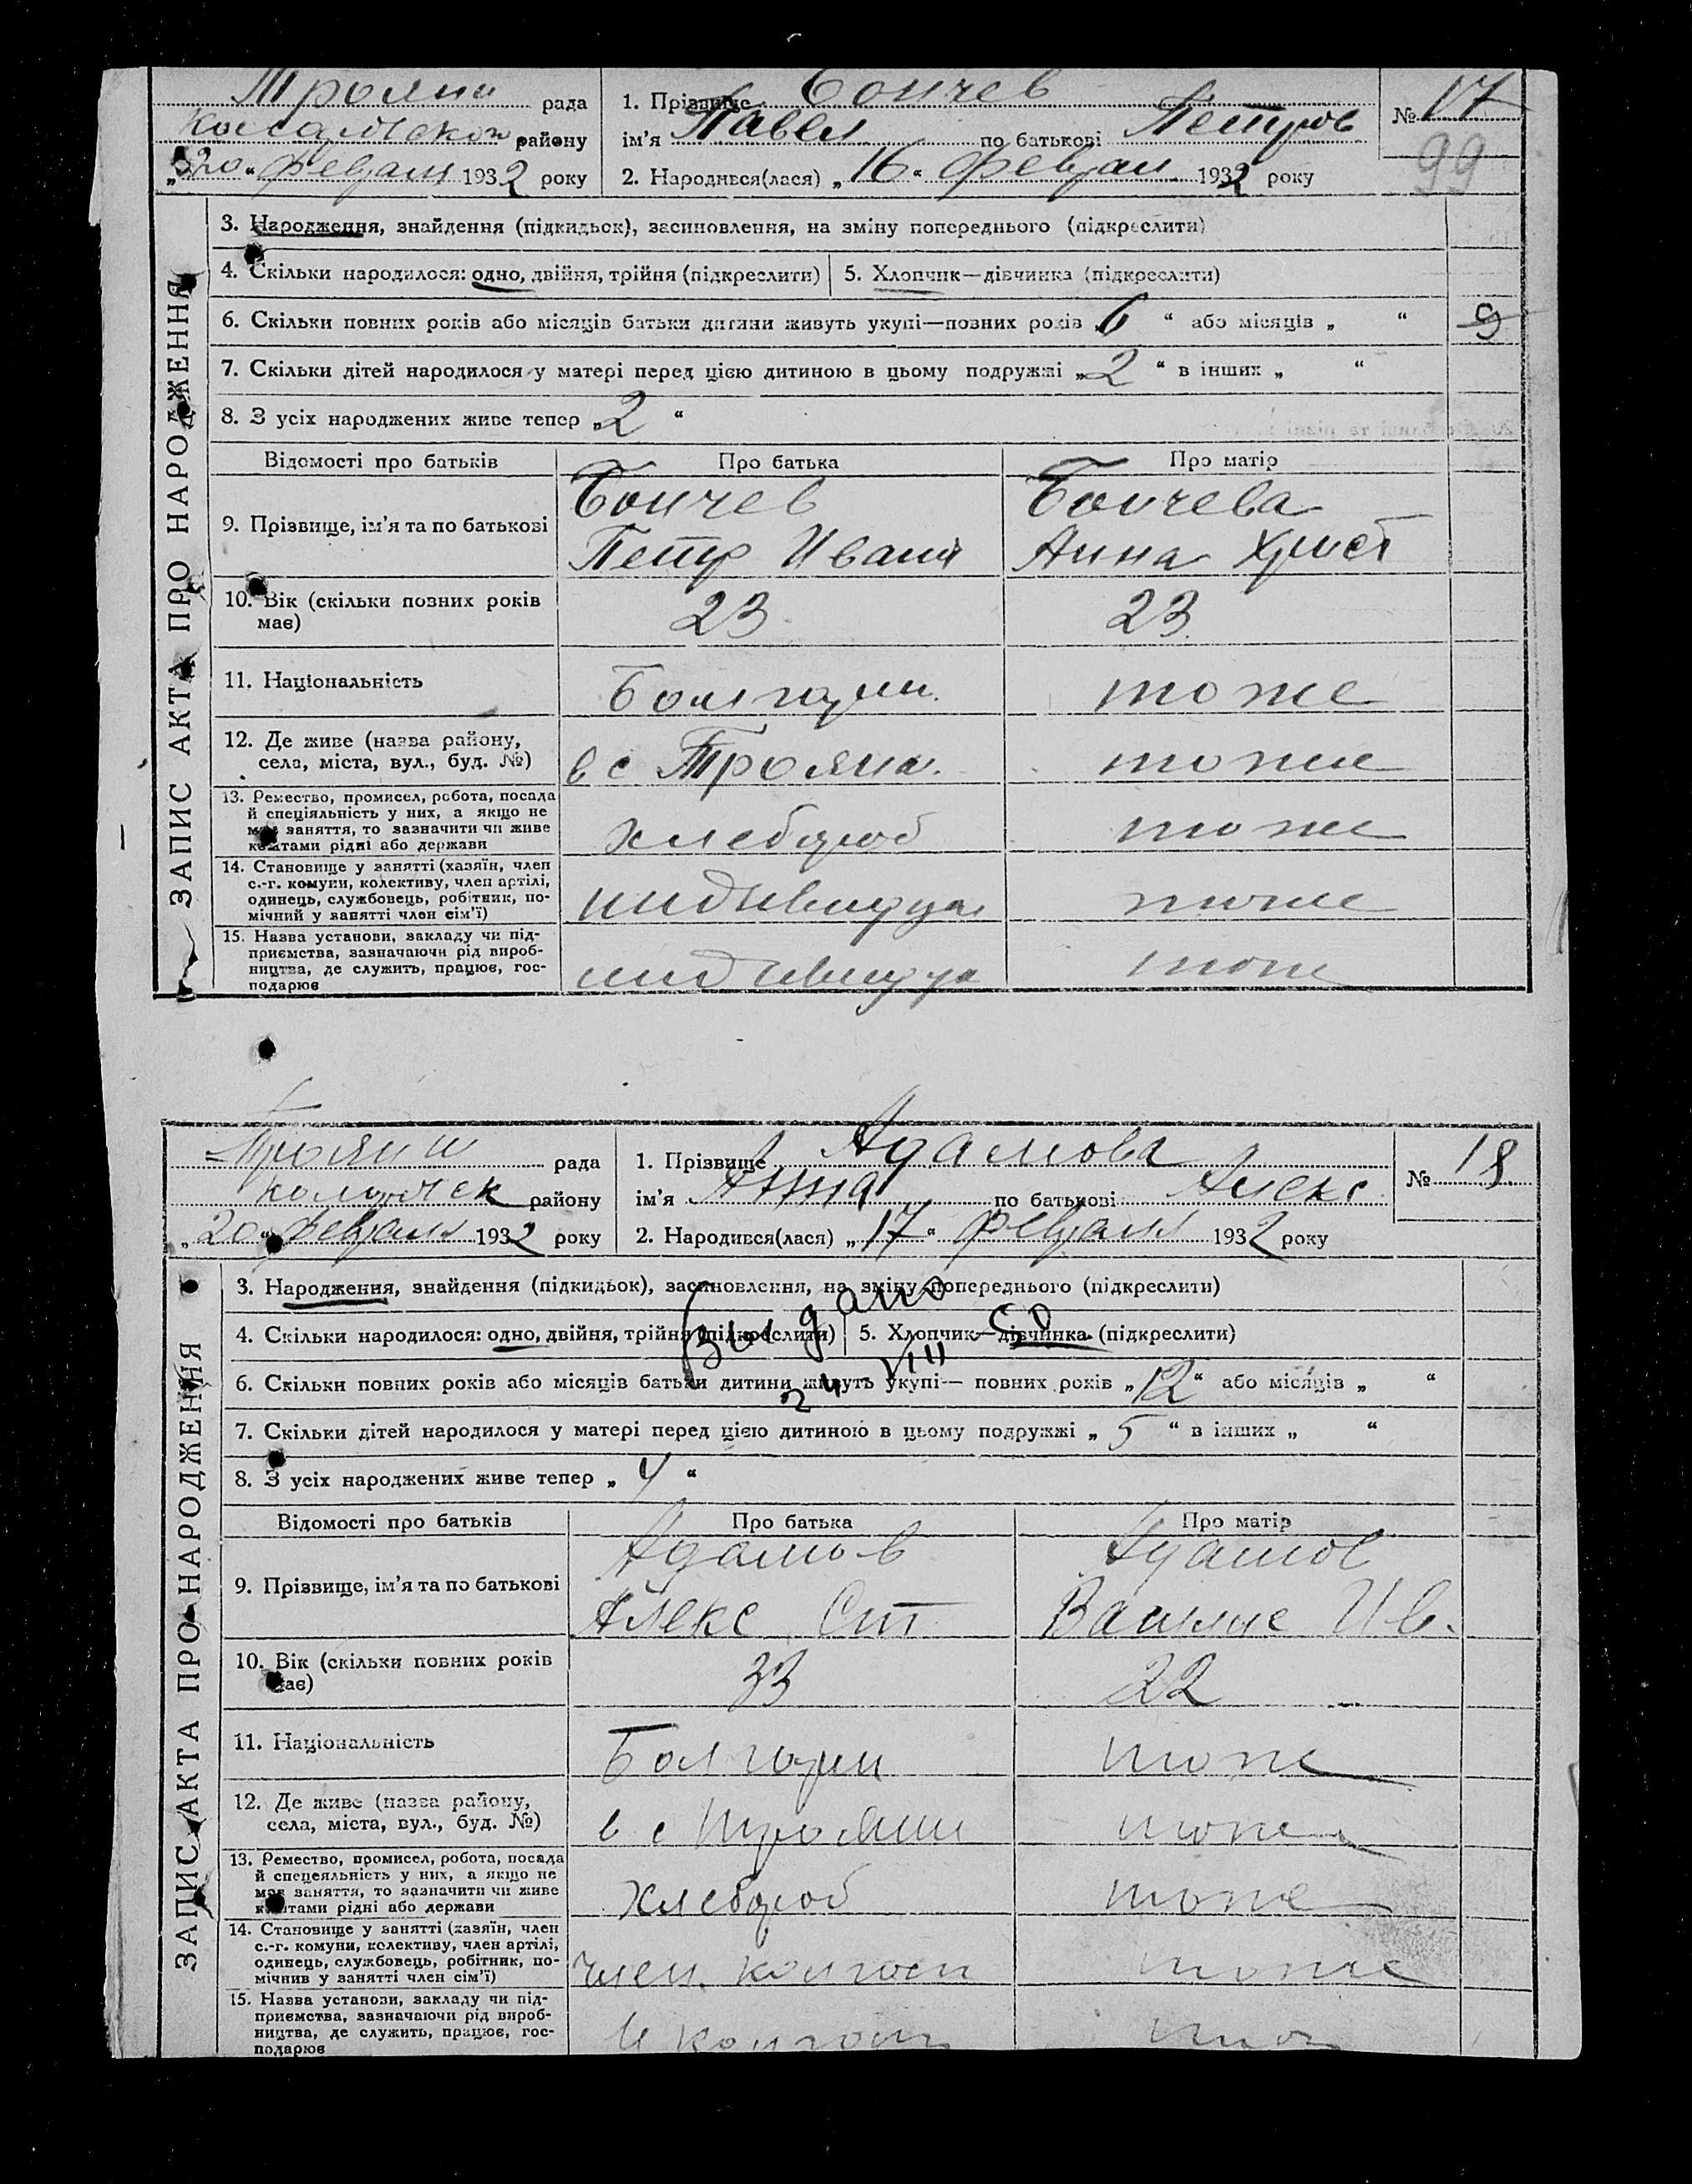 Трояни рада
Коларовском району
"20" февраля 1932 року
1. Прізвище Бончев
ім'я Павел по батькові Петров
2. Народився(лася) "16" феврал. 1932 року
№ 17
99
ЗАПИС АКТА ПРО НАРОДЖЕННЯ
3. Народження, знайдення (підкидьок), засиновлення, на зміну попереднього (підкреслити)
4. Скільки народилося: одно, двійня, трійня (підкреслити) 5. Хлопчик—дівчинка (підкреслити)
6. Скільки повних років або місяців батьки дитини живуть укупі—повних років „6“ або місяців „ “
9
7. Скільки дітей народилося у матері перед цією дитиною в цьому подружжі „2“ в інших „ “
8. З усіх народжених живе тепер „2“
Відомості про батьків Про батька Про матір
9. Прізвище, ім'я та по батькові
Бончев Бончева
Петр Иванов Анна Христ
10. Вік (скільки повних років має) 23 23
11. Національність Болгарин. тоже
12. Де живе (назва району, села, міста, вул., буд. №) в с Трояна. тоже
13. Ремество, промисел, робота, посада й спеціяльність у них, а якщо не має заняття, то зазначити чи живе коштами рідні або держави
хлебороб тоже
14. Становище у занятті (хазяїн, член с.-г. комуни, колективу, член артілі, одинець, службовець, робітник, помічний у занятті член сім'ї)
индивидуал тоже
15. Назва установи, закладу чи підприємства, зазначаючи рід виробництва, де служить, працює, господарює
индивидуа тоже
Трояни рада
району
"20" февраля 1932 року
1. Прізвище Адамова
ім'я Анна по батькові Алекс
2. Народився(лася) "17" февраля 1932 року
№ 18
ЗАПИС АКТА ПРО НАРОДЖЕННЯ
3. Народження, знайдення (підкидьок), засиновлення, на зміну попереднього (підкреслити)
4. Скільки народилося: одно, двійня, трійня (підкреслити) 5. Хлопчик—дівчинка (підкреслити)
Выдано
24 VIII 50
6. Скільки повних років або місяців батьки дитини живуть укупі— повних років „12“ або місяців „ “
7. Скільки дітей народилося у матері перед цією дитиною в цьому подружжі „5“ в інших „ “
8. З усіх народжених живе тепер „4“
Відомості про батьків Про батька Про матір
9. Прізвище, ім'я та по батькові
Адамов Адамов
Алекс Ст Ив.
10. Вік (скільки повних років має) 33 22
11. Національність Болгарин тоже
12. Де живе (назва району, села, міста, вул., буд. №) в с Трояни тоже
13. Ремество, промисел, робота, посада й спецеяльність у них, а якщо не має заняття, то зазначити чи живе коштами рідні або держави
хлебороб тоже
14. Становище у занятті (хазяїн, член с.-г. комуни, колективу, член артілі, одинець, службовець, робітник, помічнив у занятті член сім'ї)
член колгосп тоже
15. Назва установи, закладу чи підприємства, зазначаючи рід виробництва, де служить, працює, господарює
колгосп